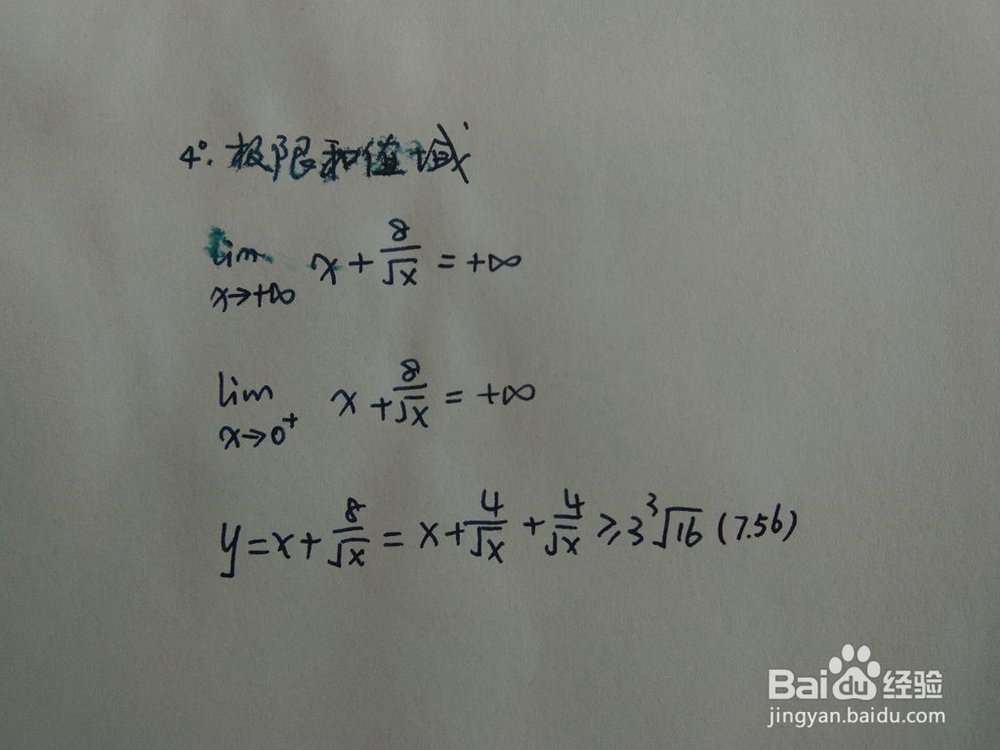 4°. 极限和值域
lim x→+∞ x + 8/√x = +∞
lim x→0⁺ x + 8/√x = +∞
y = x + 8/√x = x + 4/√x + 4/√x ≥ 3 ³√16 (7.56)
Baidu 经验
jingyan.baidu.com